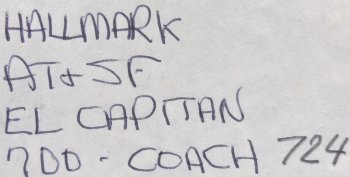 HALLMARK
AT+SF
EL CAPITAN
700 - COACH 724